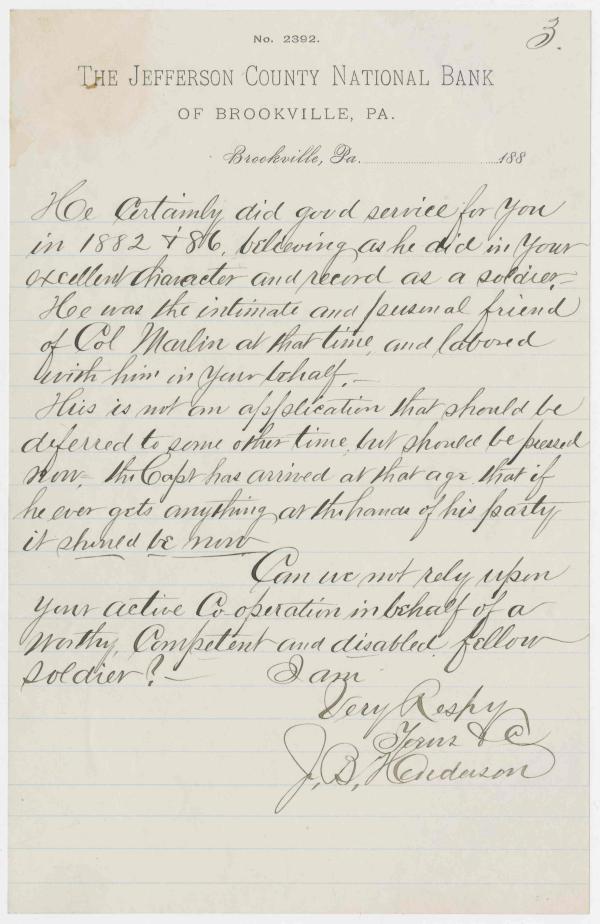 No. 2392.
3.
THE JEFFERSON COUNTY NATIONAL BANK
OF BROOKVILLE, PA.
Brookville, Pa. 188
He Certainly did good service for You
in 1882 & 86, believing as he did in Your
excellent character and record as a soldier.—
He was the intimate and personal friend
of Col Marlin at that time, and labored
with him in Your behalf.—
This is not an application that should be
deferred to some other time, but should be pressed
now. the Capt has arrived at that age that if
he ever gets anything at the hands of his party
it should be now
Can we not rely upon
Your active Co operation in behalf of a
worthy, Competent and disabled fellow
soldier?— I am
Very Respy
Yours &C
J. B. Henderson